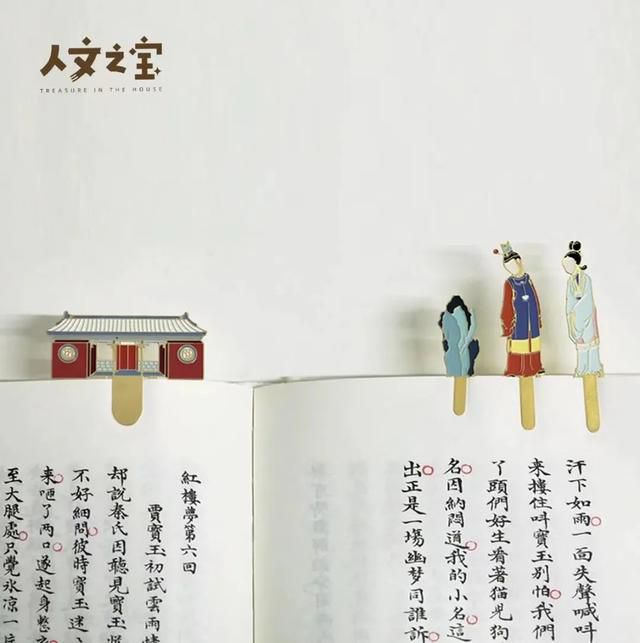 人文之宝
TREASURE IN THE HOUSE
汗下如雨一面失聲喊叫
來摟住叫寶玉别怕我們
丫頭們好生看著貓兒狗
名因納悶道我的小名這
出正是一場幽梦同誰訴
紅樓夢第六回
賈寶玉初試雲雨情
却說秦氏因聽見寶玉從
不好細問彼時寶玉迷
來咂了两口遂起身整衣
至大腿處只覺氷凉一